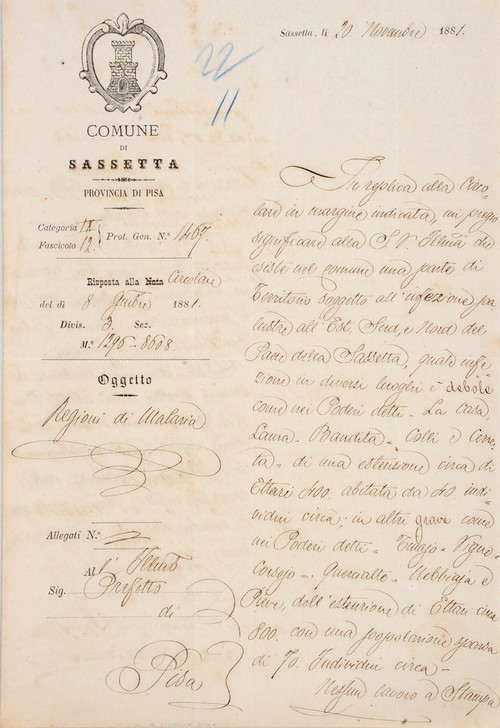 Sassetta, li 20. Novembre 1881.
22
11
COMUNE
DI
SASSETTA
PROVINCIA DI PISA
Categoria II
Fascicolo 12.
Prot. Gen. N.° 1467.
Risposta alla Nota Circolare
del dì 8. 1881.
Divis. 3. Sez.
N.° 1295-8608.
Oggetto
Regioni di Malaria
Allegati N.°
Al
Sig. Prefetto
di
Pisa
In replica alla Circo
lare in margine indicata mi pregio
significare alla S. V. che
esiste nel comune una parte di
Territorio soggetto all'infezione pa
lustre all'Est, Sud, e Nord del
Paese della Sassetta, quale infe
zione in diversi luoghi è debole
come nei Poderi detti = La Casa
Bandita = Colli e
= di una estensione circa di
Ettari 400 abitata da 40 indi
vidui circa; in altri grave come
nei Poderi detti =
= Quercialte =
Pieve, dell'estensione di Ettari circa
800. con una popolazione sparsa
di 70. Individui circa =
Nessun lavoro a Stampa